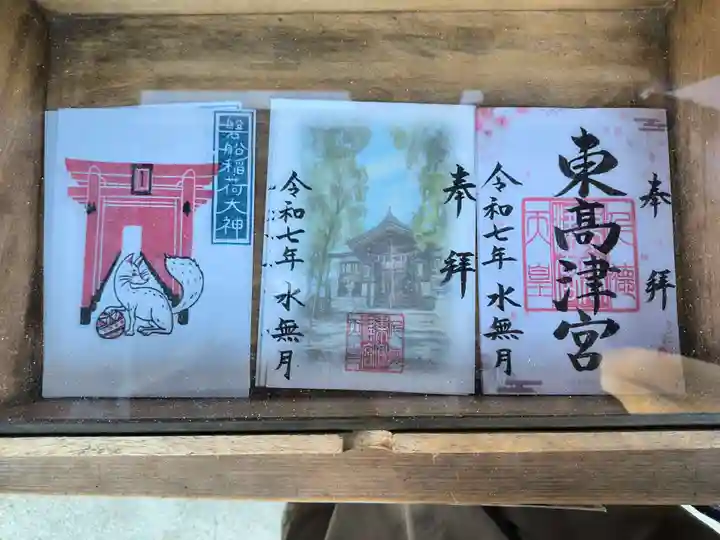 磐船稲荷大神
奉拝
令和七年 水無月
奉拝
東高津宮
仁徳天皇
令和七年 水無月